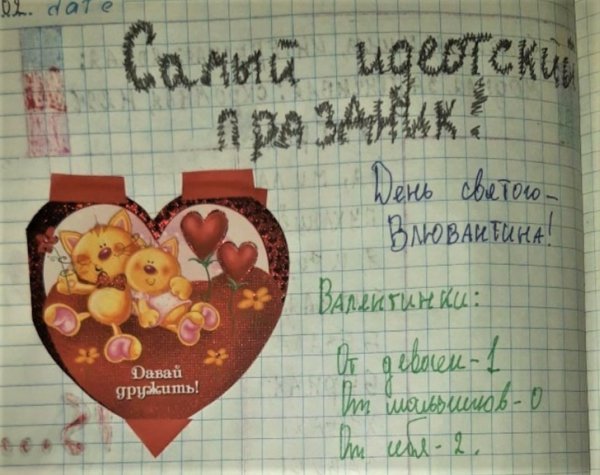 02. date
Самый идеотский
праздник!
День святого-
Влювантина!
Валентинки:
От девочек-1
От мальчиков-0
От себя-2.
Давай
дружить!